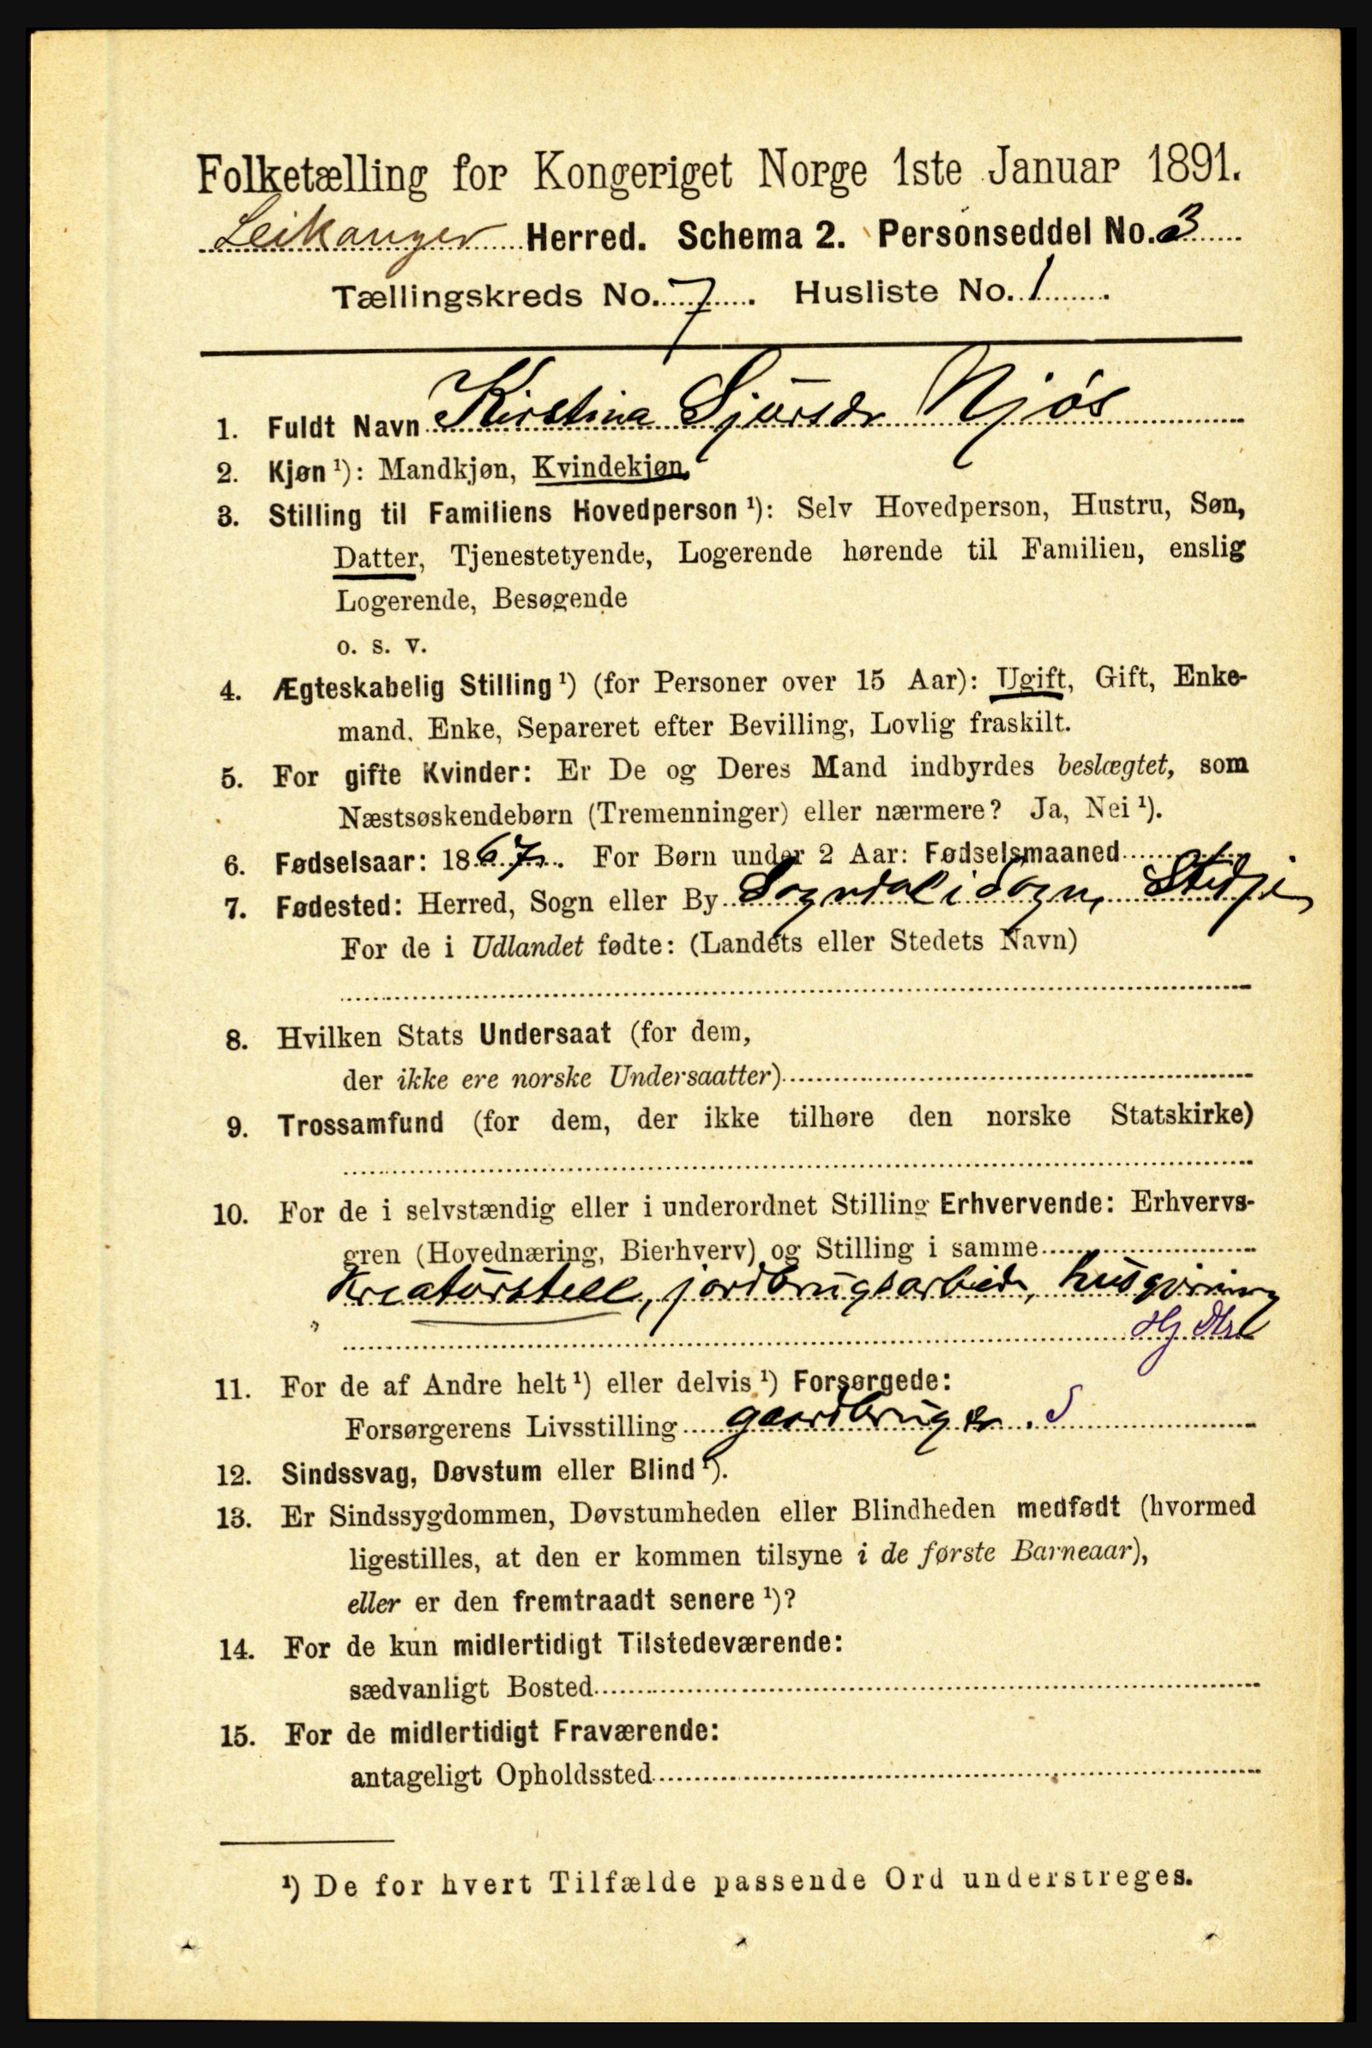 Folketælling for Kongeriget Norge 1ste Januar 1891.
Leikanger Herred. Schema 2. Personseddel No. 3
Tællingskreds No. 7. Husliste No. 1.
1. Fuldt Navn Kirstina Sjursdr Njøs
2. Kjøn ¹): Mandkjøn, Kvindekjøn.
3. Stilling til Familiens Hovedperson ¹): Selv Hovedperson, Hustru, Søn,
Datter, Tjenestetyende, Logerende hørende til Familien, enslig
Logerende, Besøgende
o. s. v.
4. Ægteskabelig Stilling ¹) (for Personer over 15 Aar): Ugift, Gift, Enke-
mand, Enke, Separeret efter Bevilling, Lovlig fraskilt.
5. For gifte Kvinder: Er De og Deres Mand indbyrdes beslægtet, som
Næstsøskendebørn (Tremenninger) eller nærmere? Ja, Nei ¹).
6. Fødselsaar: 1867. For Børn under 2 Aar: Fødselsmaaned
7. Fødested: Herred, Sogn eller By Sogndal i Sogn, Stedje
For de i Udlandet fødte: (Landets eller Stedets Navn)
8. Hvilken Stats Undersaat (for dem,
der ikke ere norske Undersaatter)
9. Trossamfund (for dem, der ikke tilhøre den norske Statskirke)
10. For de i selvstændig eller i underordnet Stilling Erhvervende: Erhvervs-
gren (Hovednæring, Bierhverv) og Stilling i samme
Kreaturstell, jordbrugsarbeide, husgjerning
11. For de af Andre helt ¹) eller delvis ¹) Forsørgede:
Forsørgerens Livsstilling gaardbruger. S
12. Sindssvag, Døvstum eller Blind ¹).
13. Er Sindssygdommen, Døvstumheden eller Blindheden medfødt (hvormed
ligestilles, at den er kommen tilsyne i de første Barneaar),
eller er den fremtraadt senere ¹)?
14. For de kun midlertidigt Tilstedeværende:
sædvanligt Bosted
15. For de midlertidigt Fraværende:
antageligt Opholdssted
¹) De for hvert Tilfælde passende Ord understreges.